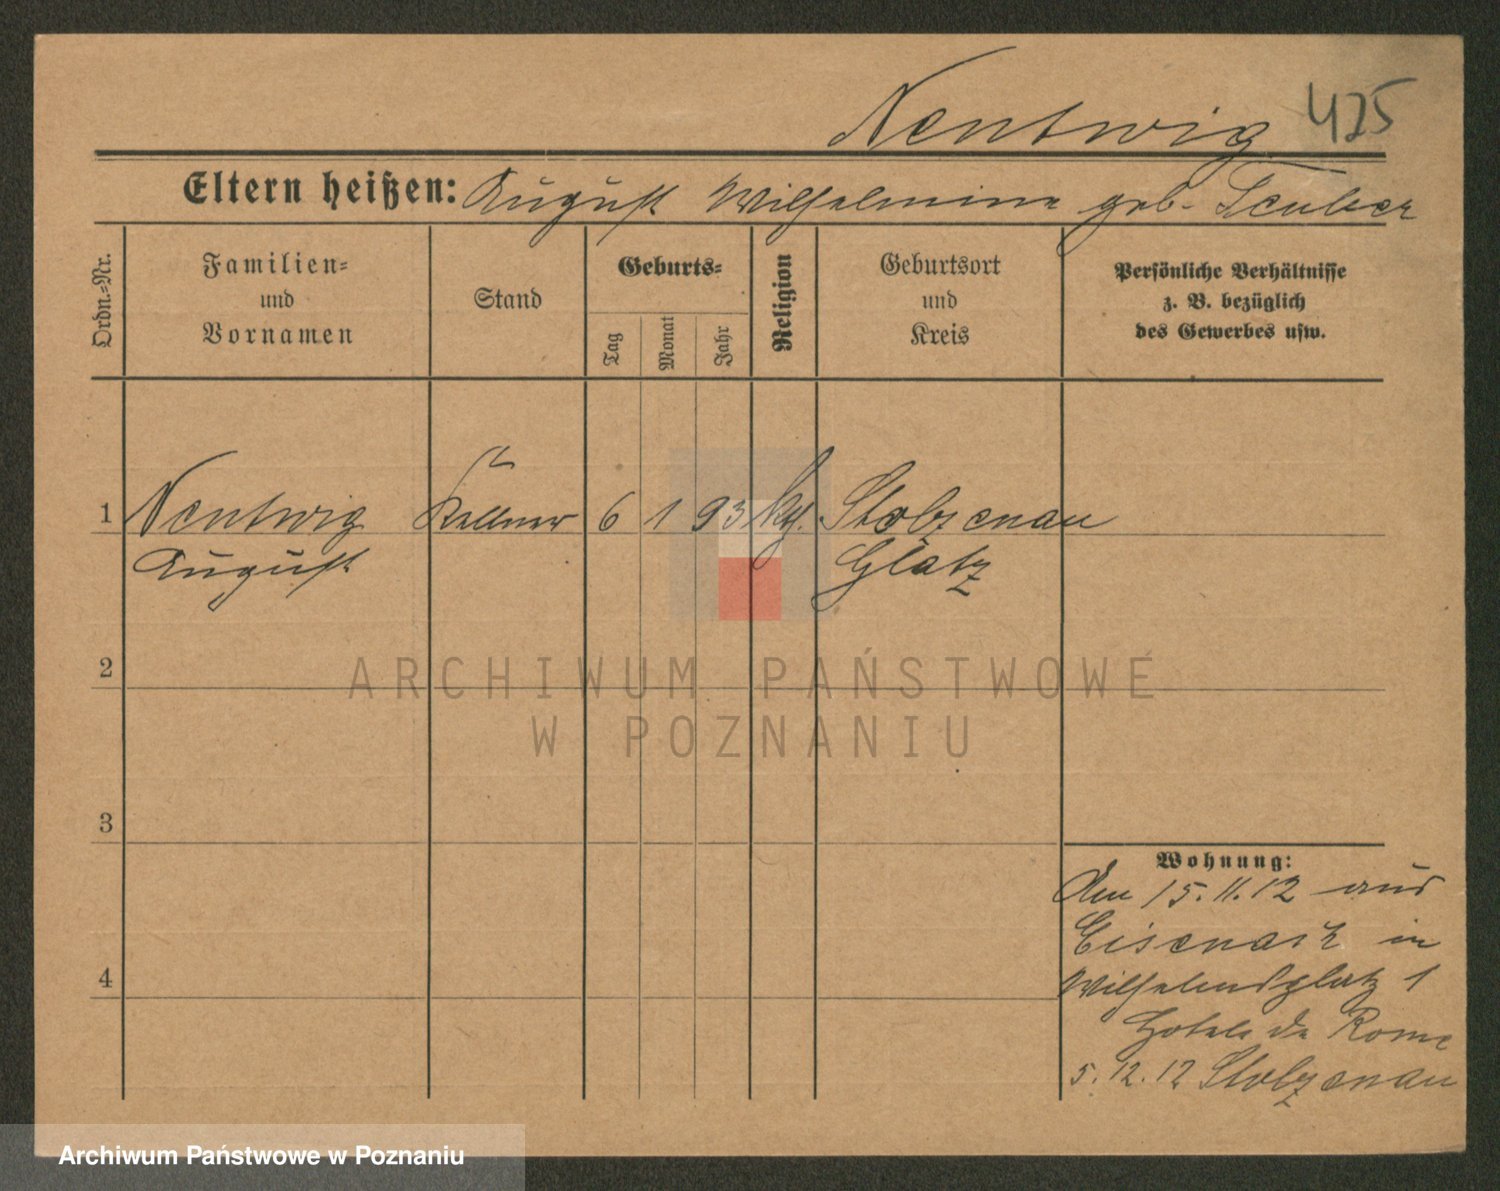 Nentwig 425
Eltern heißen: August Wilhelmine geb. Teuber
Ordn.-Nr.
Familien-
und
Vornamen
Stand
Geburts-
Tag
Monat
Jahr
Religion
Geburtsort
und
Kreis
Persönliche Verhältnisse
z. B. bezüglich
des Gewerbes usw.
1 Nentwig Kellner 6 1 93 kth. Stolzenau
August Glatz
2
ARCHIWUM PAŃSTWOWE
W POZNANIU
3
Wohnung:
den 15.11.12 aus
Eisenach in
4 Wilhelmsplatz 1
Hotel de Rome
5.12.12 Stolzenau
Archiwum Państwowe w Poznaniu